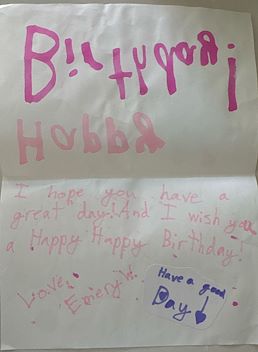 Birthday!
Happy
I hope you have a
great day! And I wish you
a Happy Happy Birthday!
Love,
Emery W.
Have a good
Day